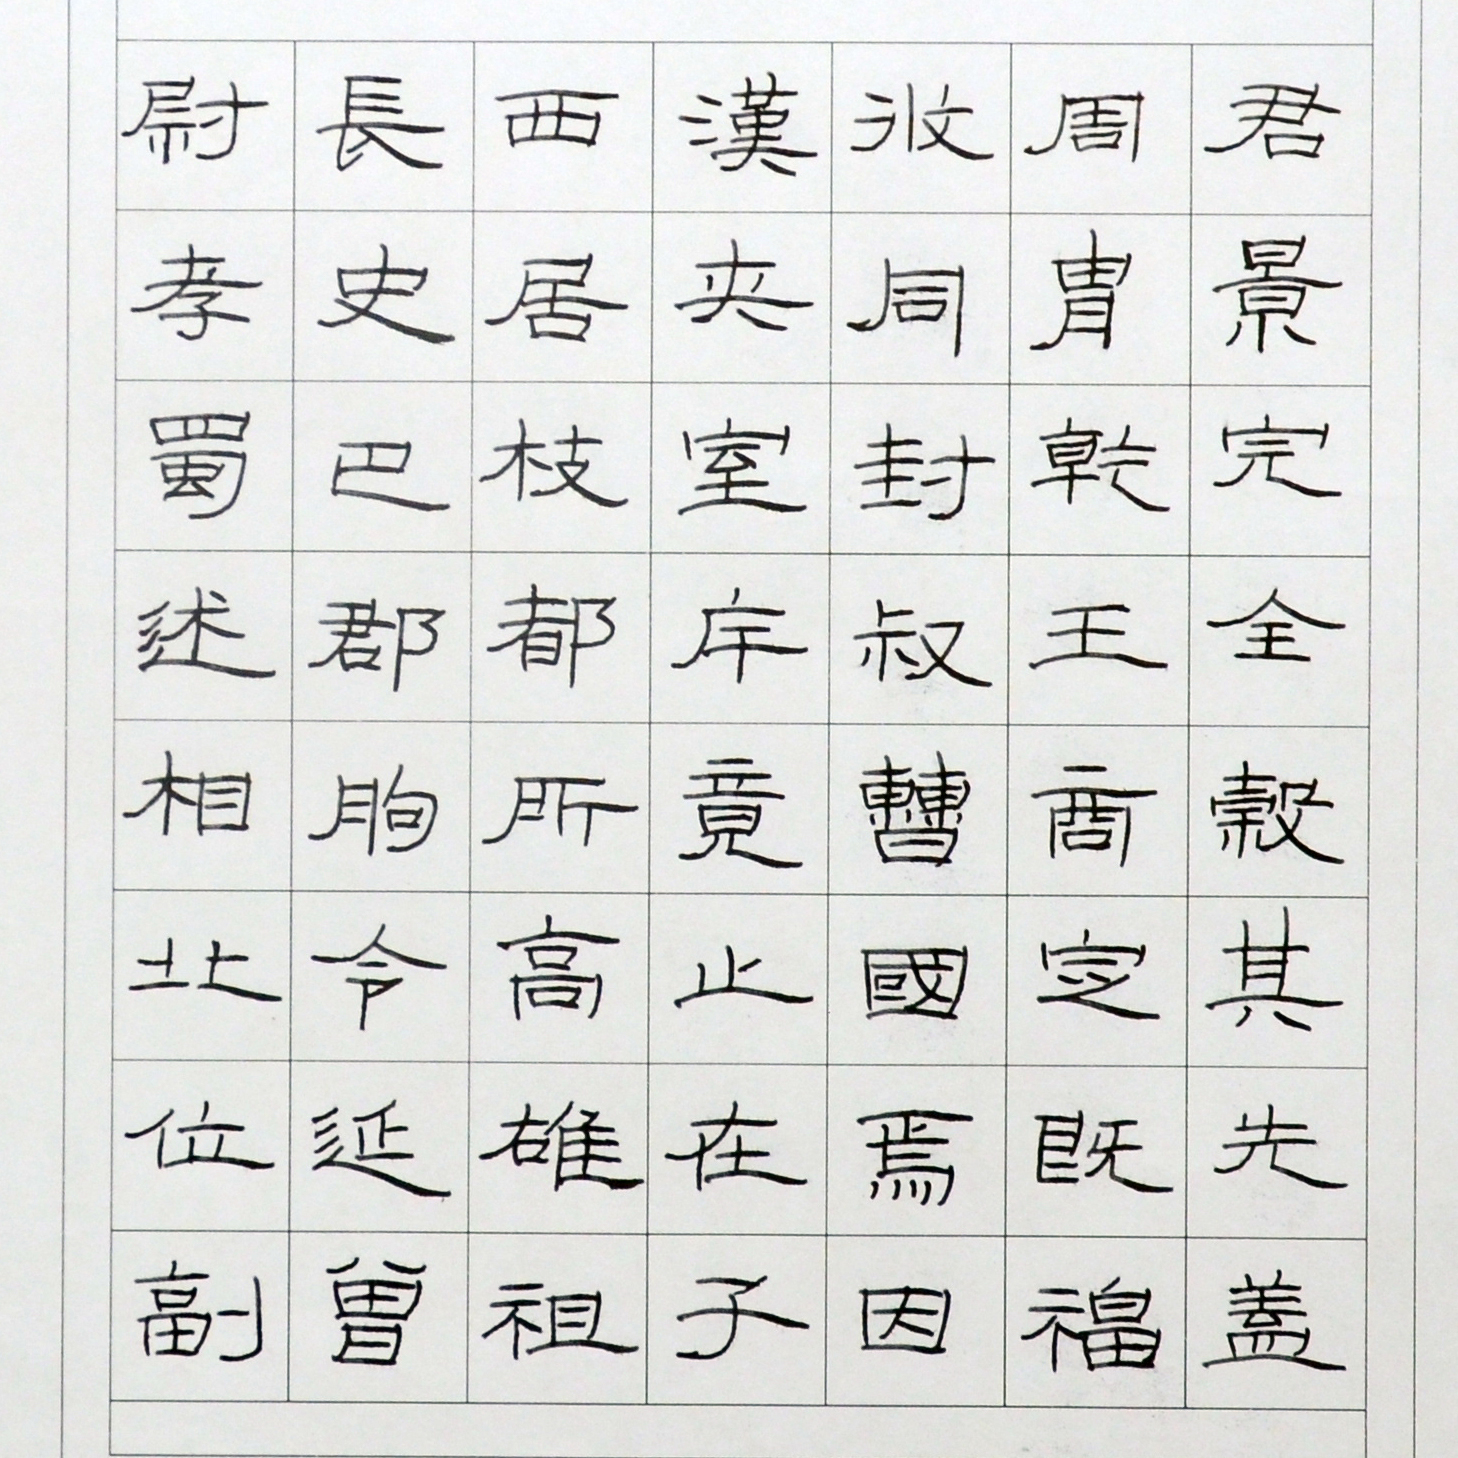 君景完全穀其先盖
周胄乾王商定既福
攸同封叔曹國焉因
漢夾室斥竟止在子
西居枝都所高雄祖
長史巴郡朐令延曾
尉孝蜀述相北位副